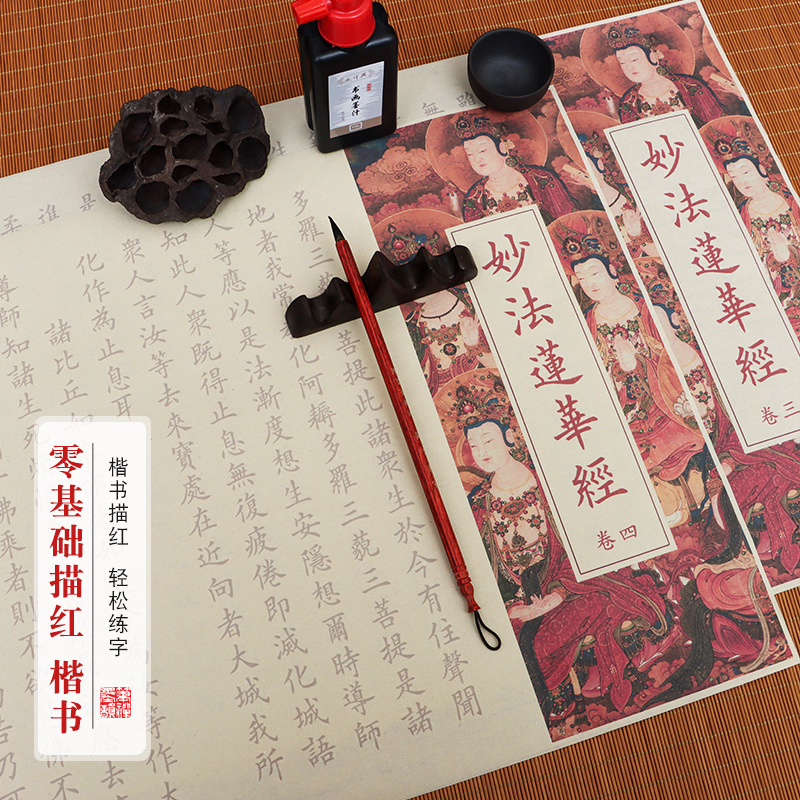 妙法蓮華經
卷三
妙法蓮華經
卷四
书画墨汁
無
多羅三 菩提此諸衆生於今有住聲聞
地者我常 化阿耨多羅三藐三菩提是諸
人等應以是法漸度想生安隱想爾時導師
知此人衆既得止息無復疲倦即滅化城語
衆人言汝等去來寶處在近向者大城我所
化作為止息耳
諸比丘如 等作
導師知諸生死 應去
佛乘者則不欲 佛不
楷书描红 轻松练字
零基础描红 楷书